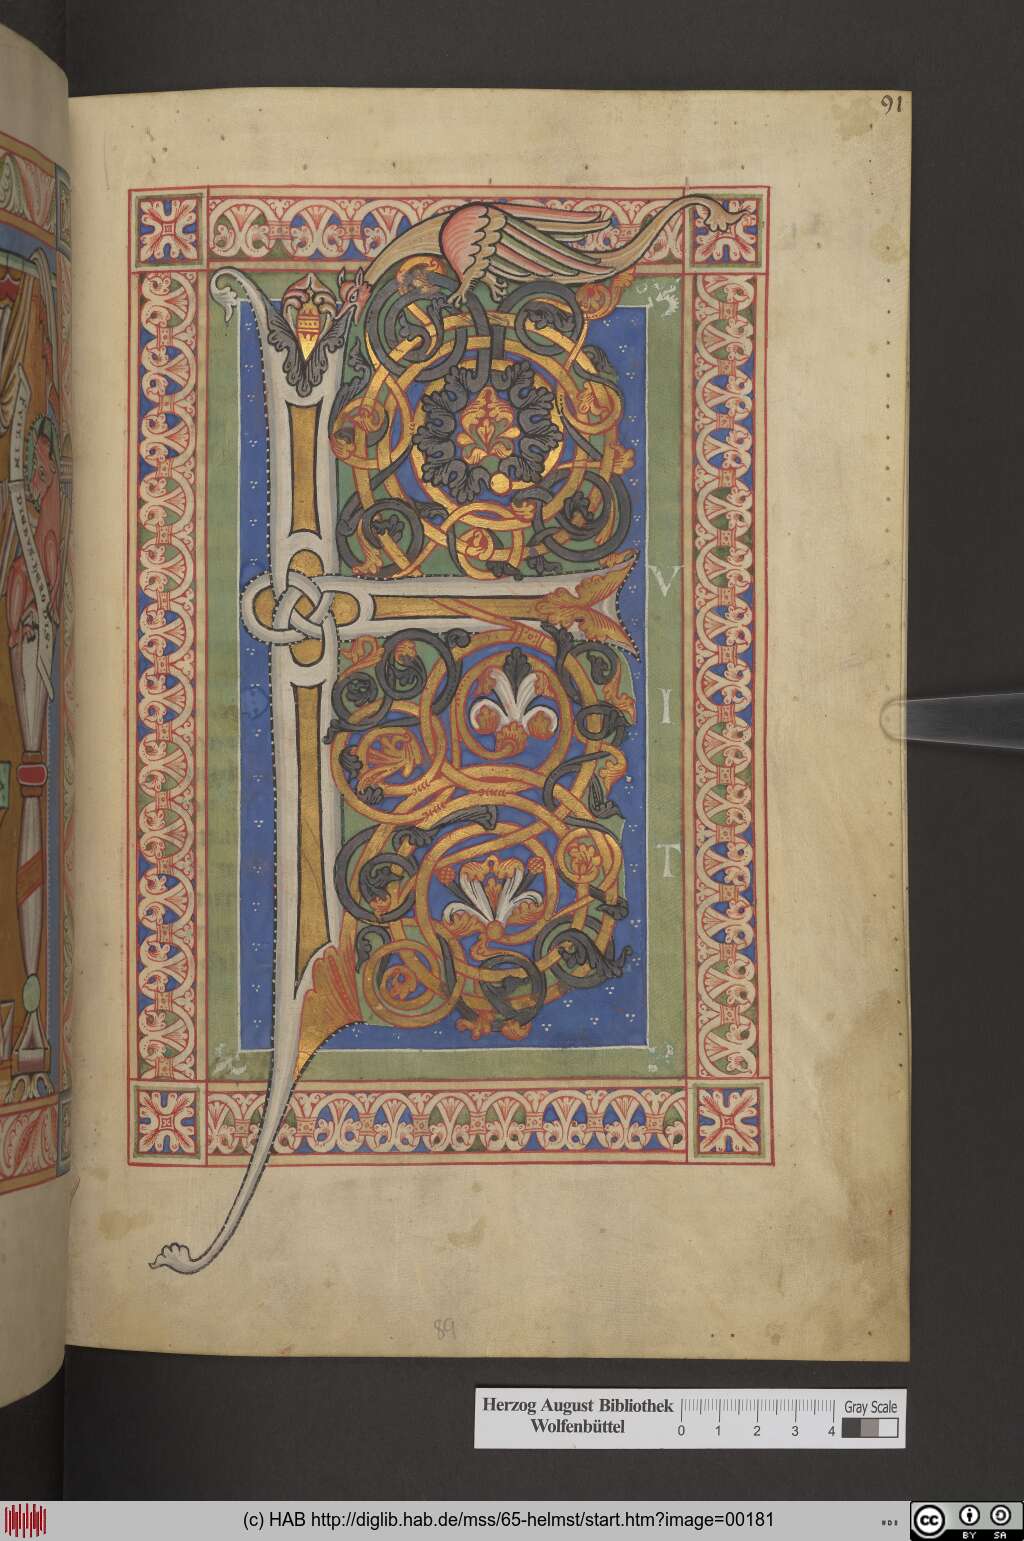 91
F
V
I
T
89
Herzog August Bibliothek
Wolfenbüttel
0 1 2 3 4
Gray Scale
(c) HAB http://diglib.hab.de/mss/65-helmst/start.htm?image=00181
cc
BY SA